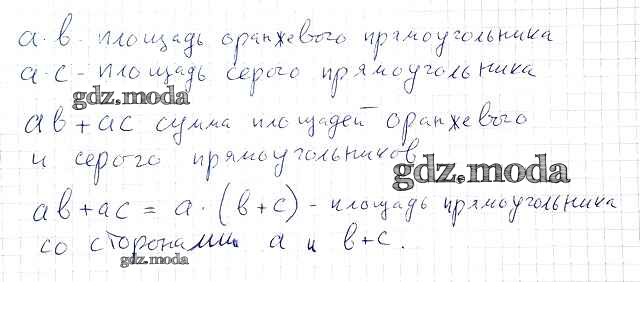 a·b - площадь оранжевого прямоугольника
a·c - площадь серого прямоугольника
gdz.moda
ab+ac сумма площадей оранжевого
и серого прямоугольников
gdz.moda
ab+ac = a·(b+c) - площадь прямоугольника
со сторонами a и b+c.
gdz.moda